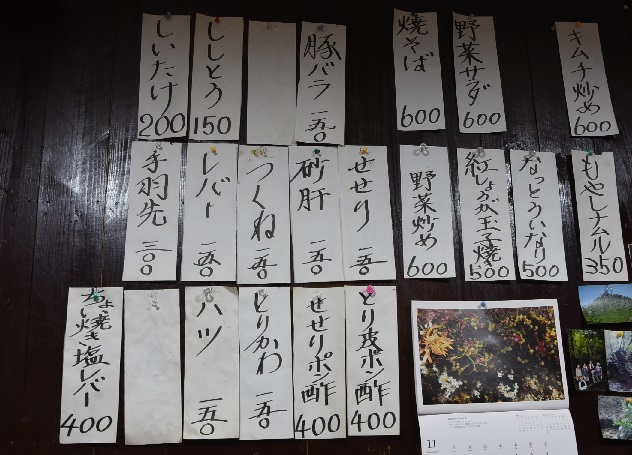 しいたけ
200
ししとう
150
豚バラ
一五〇
焼そば
600
野菜サラダ
600
キムチ炒め
600
手羽先
三〇〇
レバー
一五〇
つくね
一五〇
砂肝
一五〇
せせり
一五〇
野菜炒め
600
紅しょうが玉子焼
500
なっとういなり
500
もやしナムル
350
ちょい焼き塩レバー
400
ハツ
一五〇
とりかわ
一五〇
せせりポン酢
400
とり皮ポン酢
400